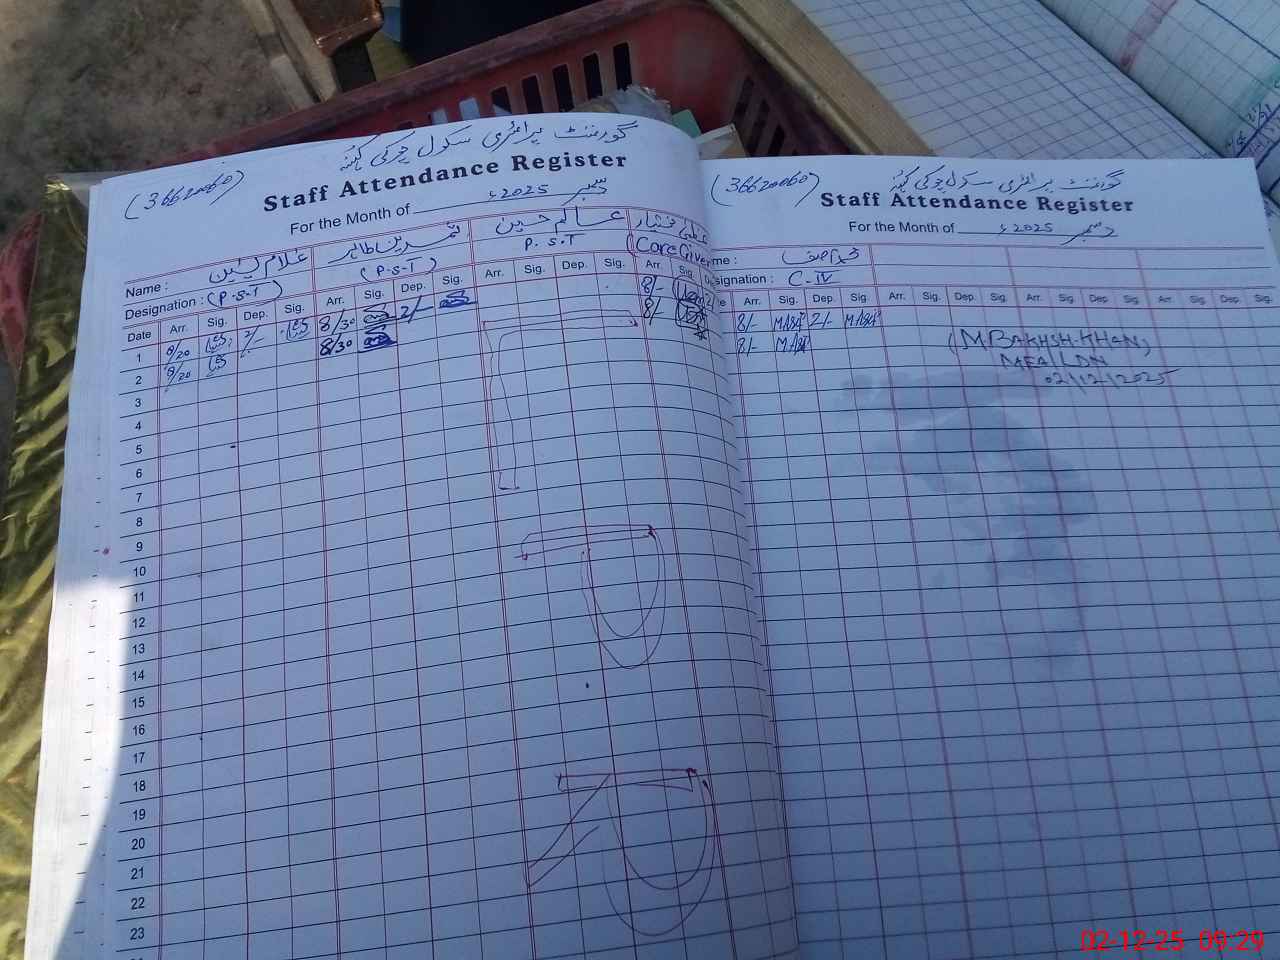 گورنمنٹ پرائمری سکول چوکی
(36620060)
Staff Attendance Register
For the Month of دسمبر 2025ء
Name : غلام یٰسین
عالم حسین
عظمیٰ مختیار
Designation : (P.S.T) (P.S.T) P.S.T (Care Giver
Date Arr. Sig. Dep. Sig. Arr. Sig. Dep. Sig. Arr. Sig. Dep. Sig. Arr. Sig.
1 8/20 2/- 8/30 2/- 8/-
2 8/20 8/30 8/-
3
4
5
6
7
8
9
10
11
12
13
14
15
16
17
18
19
20
21
22
23
گورنمنٹ پرائمری سکول چوکی
(36620060)
Staff Attendance Register
For the Month of دسمبر 2025ء
me : محمد آصف
esignation : C-IV
Arr. Sig. Dep. Sig. Arr. Sig. Dep. Sig. Arr. Sig. Dep. Sig. Arr. Sig. Dep. Sig.
8/- 2/-
8/-
(M.BAKHSH.KHAN)
MEA LDN
02/12/2025
02-12-25 09:29